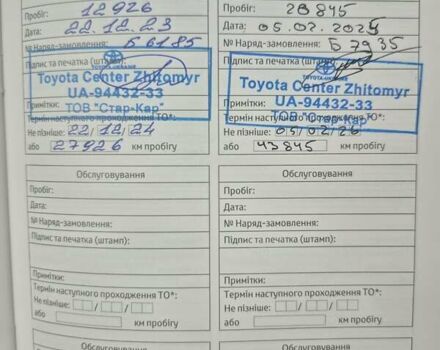 Пробіг: 12926
Дата: 22.12.23
№ Наряд-замовлення: Б 6185
Підпис та печатка (штамп):
TOYOTA-UKRAINE
Toyota Center Zhitomyr
UA-94432-33
ТОВ "Стар-Кар"
Примітки:
Термін наступного проходження ТО*:
Не пізніше: 22/12/24
або 27926 км пробігу
Пробіг: 28845
Дата: 05.02.2025
№ Наряд-замовлення: Б 7935
Підпис та печатка (штамп):
Toyota Center Zhitomyr
UA-94432-33
ТОВ "Стар-Кар"
Примітки:
Термін наступного проходження ТО*:
Не пізніше: 05/02/26
або 43845 км пробігу
Обслуговування
Пробіг:
Дата:
№ Наряд-замовлення:
Підпис та печатка (штамп):
Примітки:
Термін наступного проходження ТО*:
Не пізніше: / /
або км пробігу
Обслуговування
Пробіг:
Дата:
№ Наряд-замовлення:
Підпис та печатка (штамп):
Примітки:
Термін наступного проходження ТО*:
Не пізніше: / /
або км пробігу
Обслуговування
Обслуговування